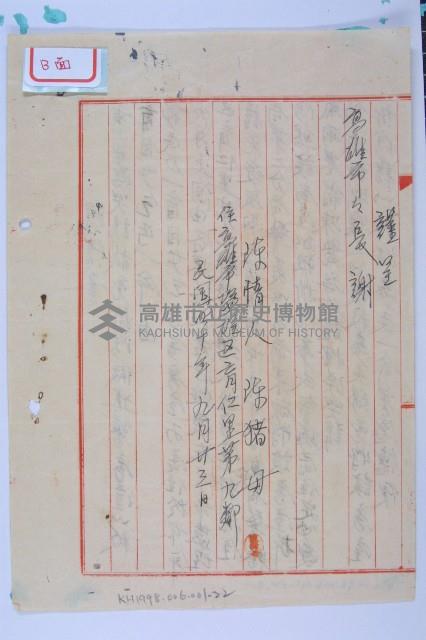 B面
謹呈
高雄市市長 謝
陳情人 陳猪母
住高雄市塩埕区育仁里第九鄰
民国四十年九月廿三日
高雄市立歷史博物館
KAOHSIUNG MUSEUM OF HISTORY
KH1998.006.001-22